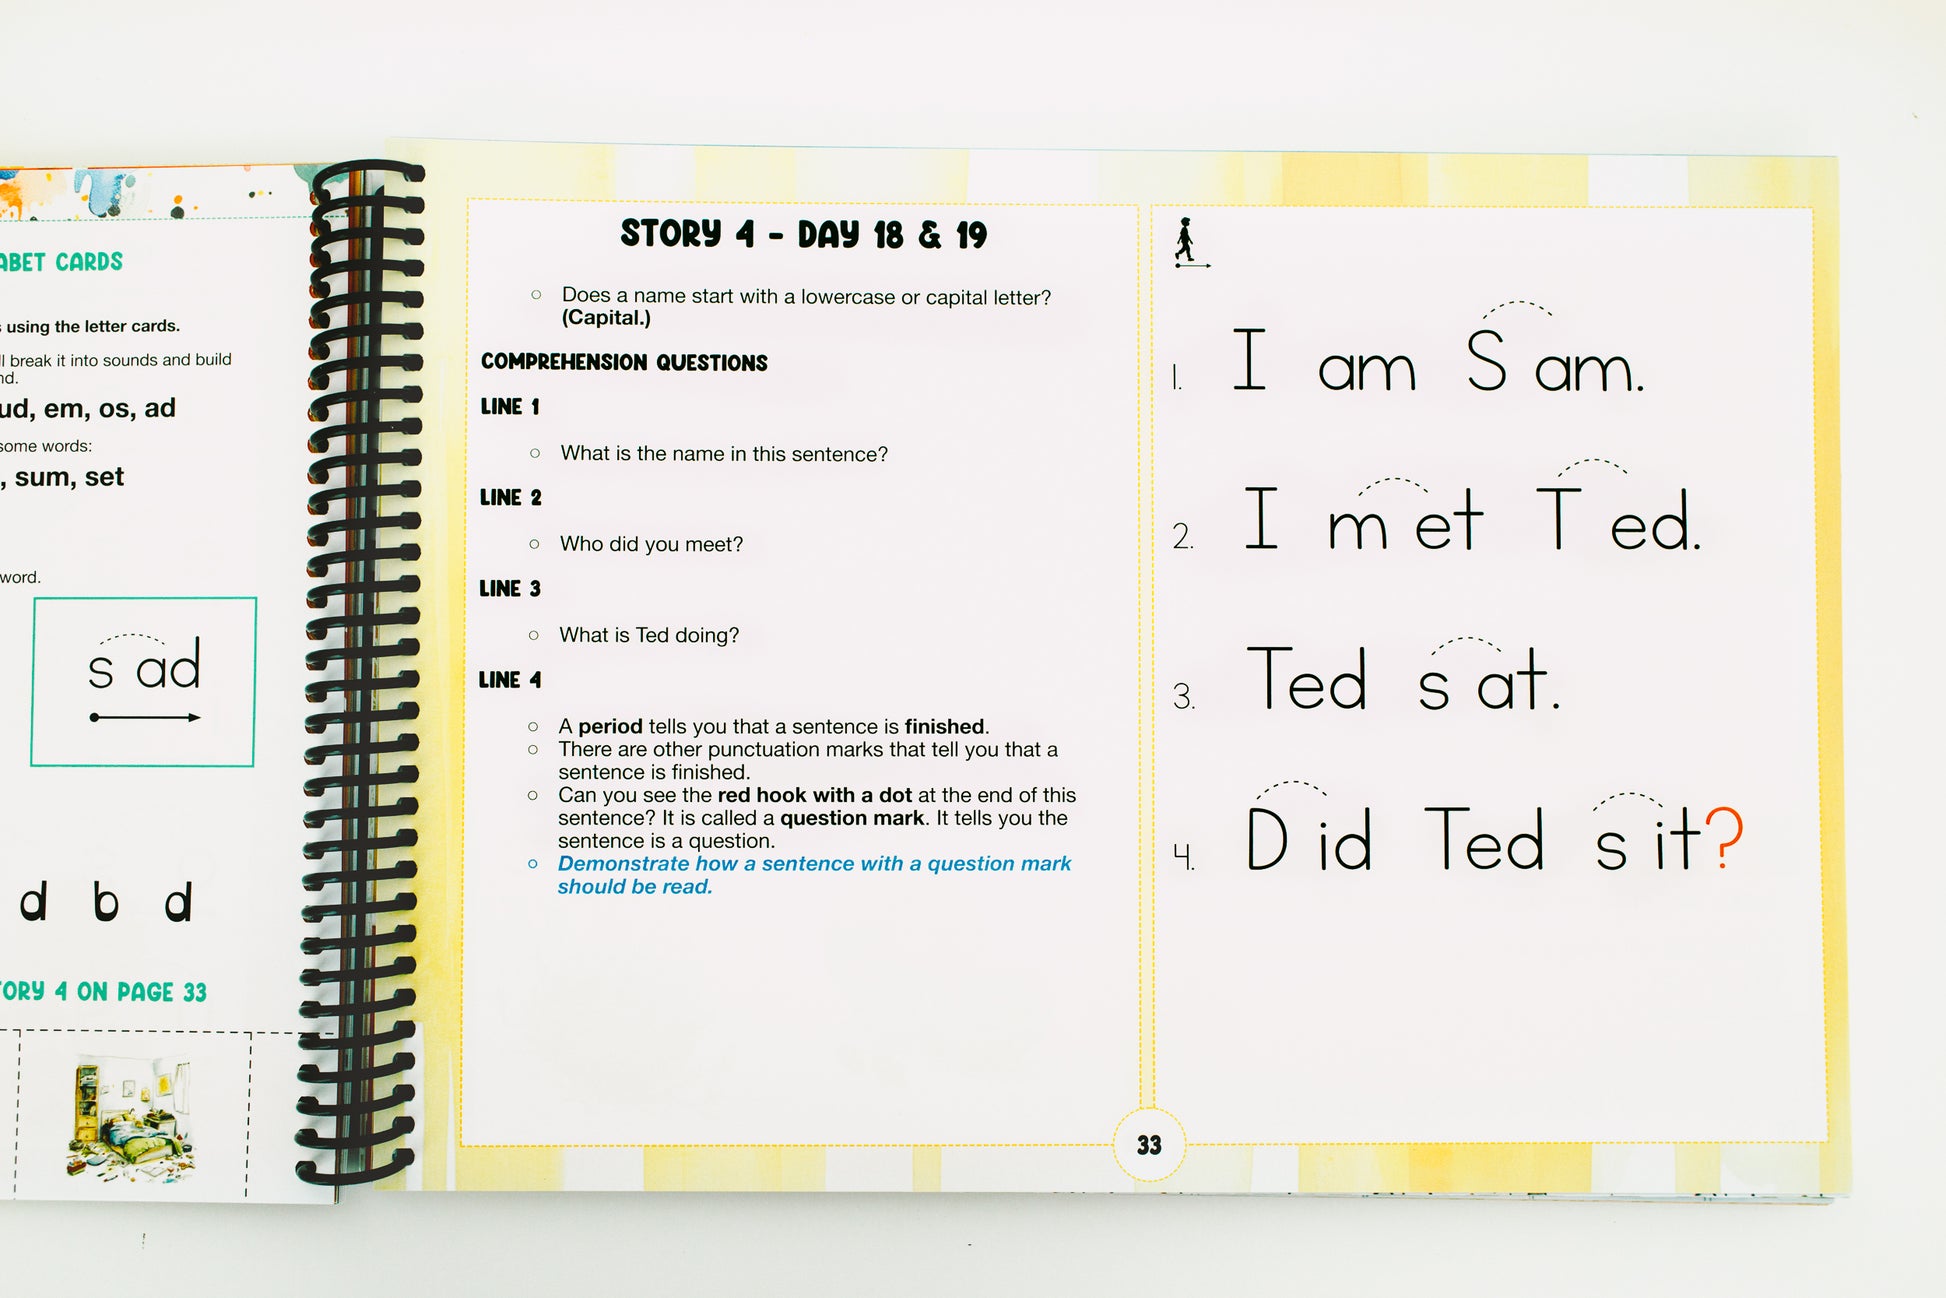 ABET CARDS
using the letter cards.
ll break it into sounds and build
nd.
ud, em, os, ad
some words:
, sum, set
word.
s ad
d b d
TORY 4 ON PAGE 33
STORY 4 - DAY 18 & 19
○ Does a name start with a lowercase or capital letter?
(Capital.)
COMPREHENSION QUESTIONS
LINE 1
○ What is the name in this sentence?
LINE 2
○ Who did you meet?
LINE 3
○ What is Ted doing?
LINE 4
○ A period tells you that a sentence is finished.
○ There are other punctuation marks that tell you that a
sentence is finished.
○ Can you see the red hook with a dot at the end of this
sentence? It is called a question mark. It tells you the
sentence is a question.
○ Demonstrate how a sentence with a question mark
should be read.
1. I am S am.
2. I m et T ed.
3. Ted s at.
4. D id Ted s it?
33